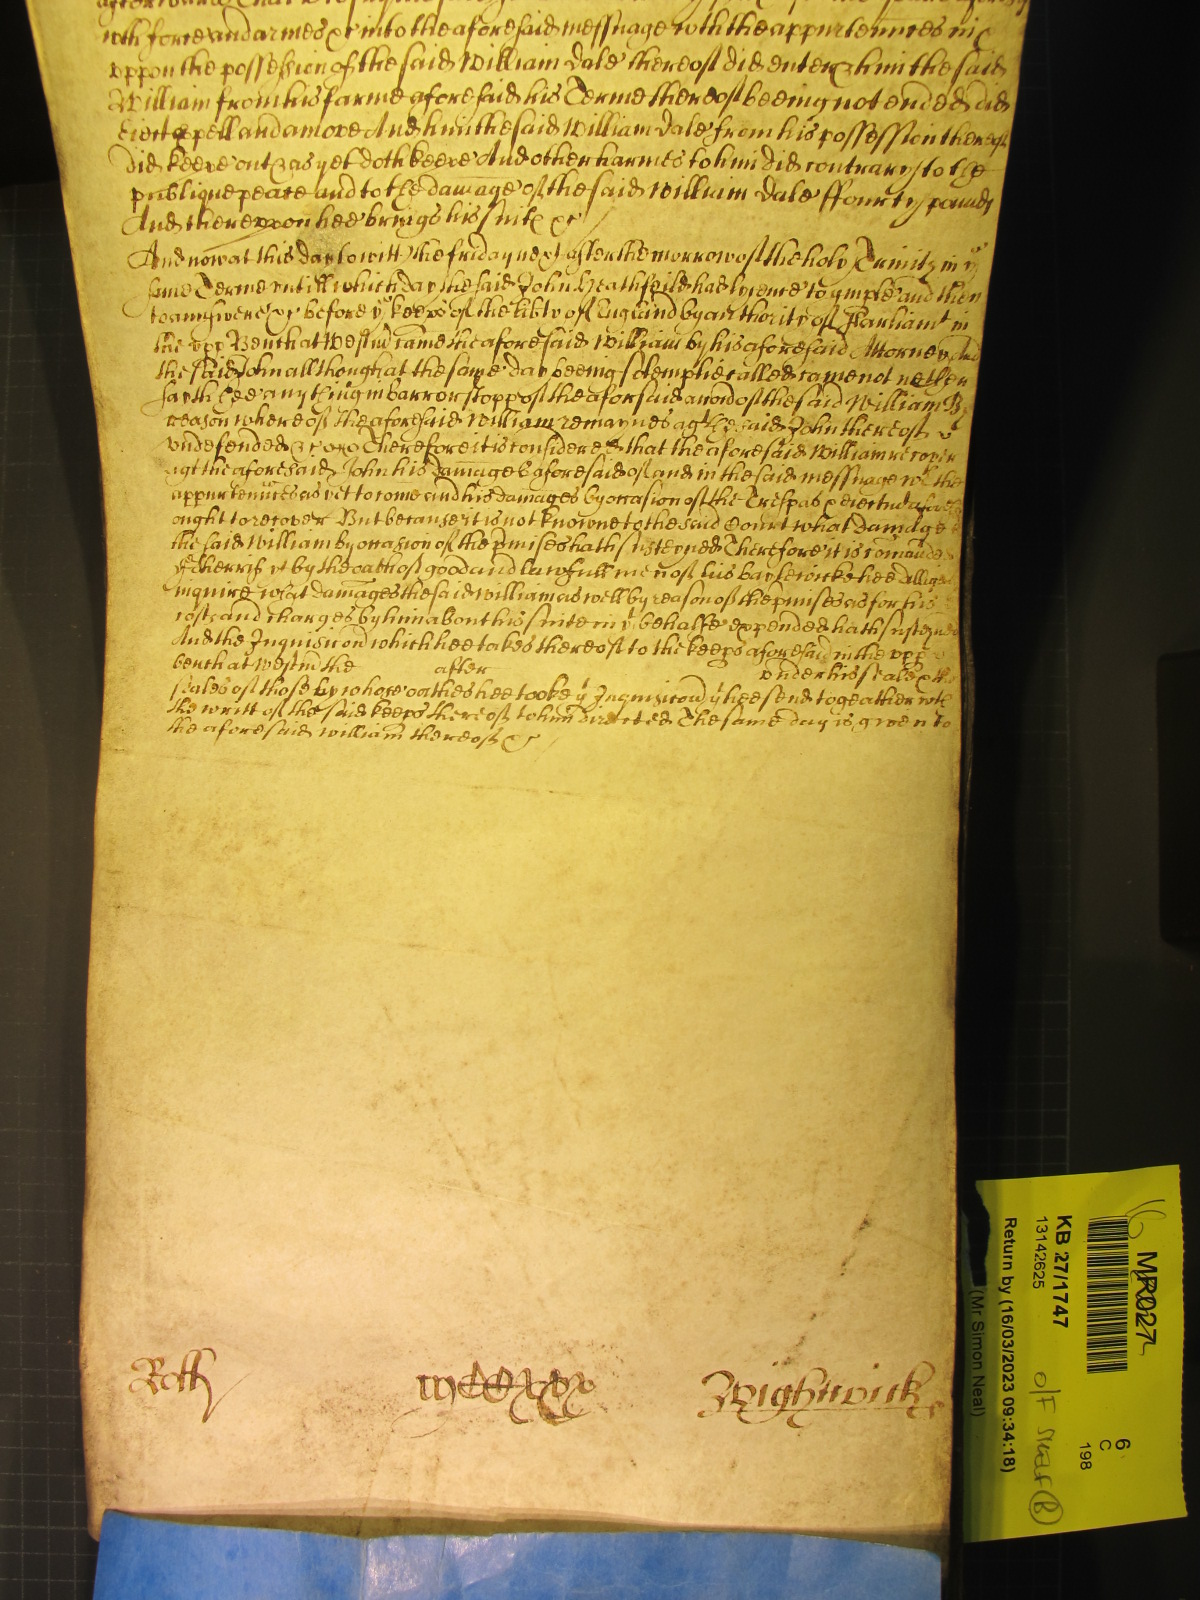 with force and armes &c into the aforesaid messuage with the appurtennces in &
vppon the possession of the said William Dale thereof did enter & him the said
William from his farme aforesaid his Terme thereof beeing not ended did
eiect expell and amove And him the said William Dale from his possession thereof
did keepe out & as yet doth keepe And other harmes to him did contrary to the
publique peace and to the damage of the said William Dale ffourty pounds
And therevppon hee brings his suite &c
And now at this day to witt the friday next after the morrow of the holy Trinity in ye
same Terme vntill which day the said John Heathfeild had lycence to imple and then
to answere &c before ye keeps of the libty of England by authority of Parliamt in
the vpp Bench at Westm came the aforesaid William by his aforesaid Attorney And
the said John all though at the same day beeing solemplie called came not neither
sayth hee any thing in barr or stopp of the aforesaid accon of the said William By
reason whereof the aforesaid William remaynes agt the said John thereof
vndefended &c Therefore it is considered that the aforesaid William recover
agt the aforesaid John his Terme aforesaid of and in the said messuage wth the
appurtennces as yet to come and his damages by occasion of the Trespas & eiectmt aforesd
ought to recover But because it is not knowne to the said Court what damage
the said William by occasion of the pmises hath susteyned Therefore it is comaunded
ye sherriff yt by the oath of good and lawfull men of his baylewicke hee diligently
inquire what damages the said William as well by reason of the pmises as for his
costs and charges by him about his suite in yt behalfe expended hath susteyned
And the Inquisicon which hee takes thereof to the keeps aforesaid in the vpp
bench at Westm the after vnder his seale & the
seales of those by whose oathes hee tooke ye Inquisicon yt hee send togeather with
the writt of the said keeps thereof to him directed The same day is given to
the aforesaid William thereof &c
Roth
Wightwick
MR027
KB 27/1747
13142625
Return by (16/03/2023 09:34:18)
(Mr Simon Neal)
6
C
198
16
O/F Shelf (B)